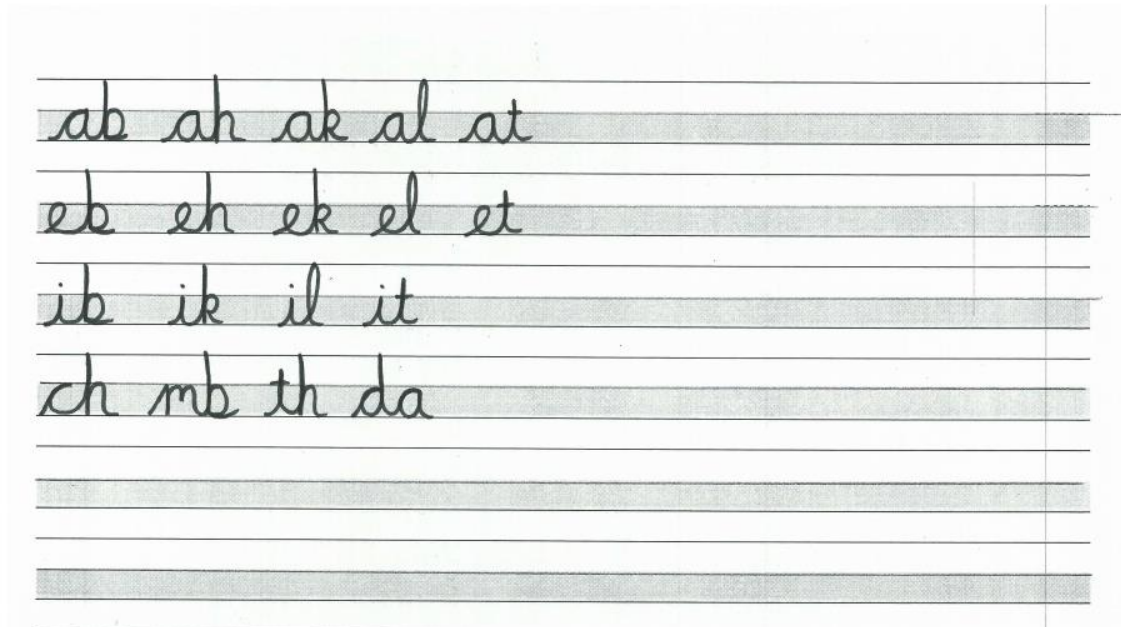 ab ah ak al at
eb eh ek el et
ib ik il it
ch mb th da